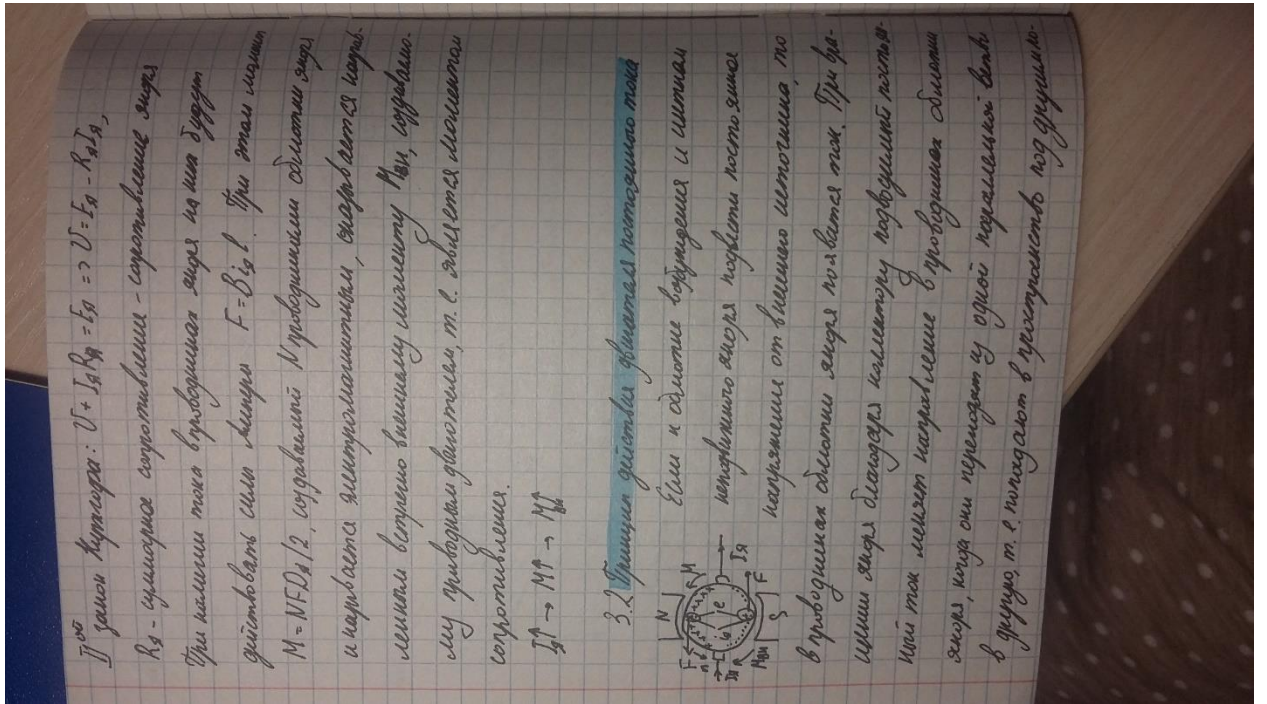 IIой закон Кирхгофа: U + IяRя = Eя => U = Eя - RяIя,
Rя - суммарное сопротивление - сопротивление якоря
При наличии тока в проводниках якоря на них будут
действовать силы Ампера F = Biяl. При этом момент
M = NFDя/2, создаваемый N проводниками обмотки якоря
и называется электромагнитным, оказывается направ-
ленным встречно внешнему моменту Mвн, создаваемо-
му приводным двигателем, т. е. является моментом
сопротивления.
Iя↑ → M↑ → Mвн↑
3.2 Принцип действия двигателя постоянного тока
Если к обмотке возбуждения и щеткам
неподвижного якоря подвести постоянное
напряжение от внешнего источника, то
в проводниках обмотки якоря появится ток. При вра-
щении якоря благодаря коллектору подводимый постоян-
ный ток меняет направление в проводниках обмотки
якоря, когда они переходят из одной параллельной ветви
в другую, т. е. попадают в пространство под другим по-
N
F
M
n
e
Iя
Iя
Mвн
S
F